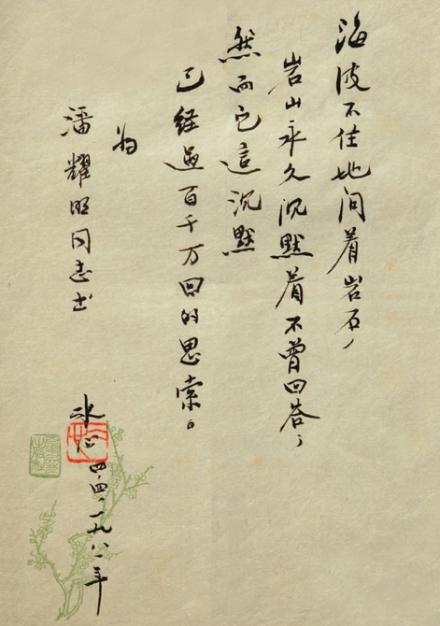 海波不住地问着岩石，
岩山永久沉默着不曾回答，
然而它這沉默
已经過百千万回的思索。
为
潘耀明同志书
冰心
四·四·一九八一年